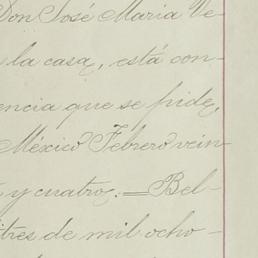 Don José Maria Ve-
la casa, está con-
encia que se pide,
México Febrero vein
y cuatro. = Bel-
tres de mil ocho-